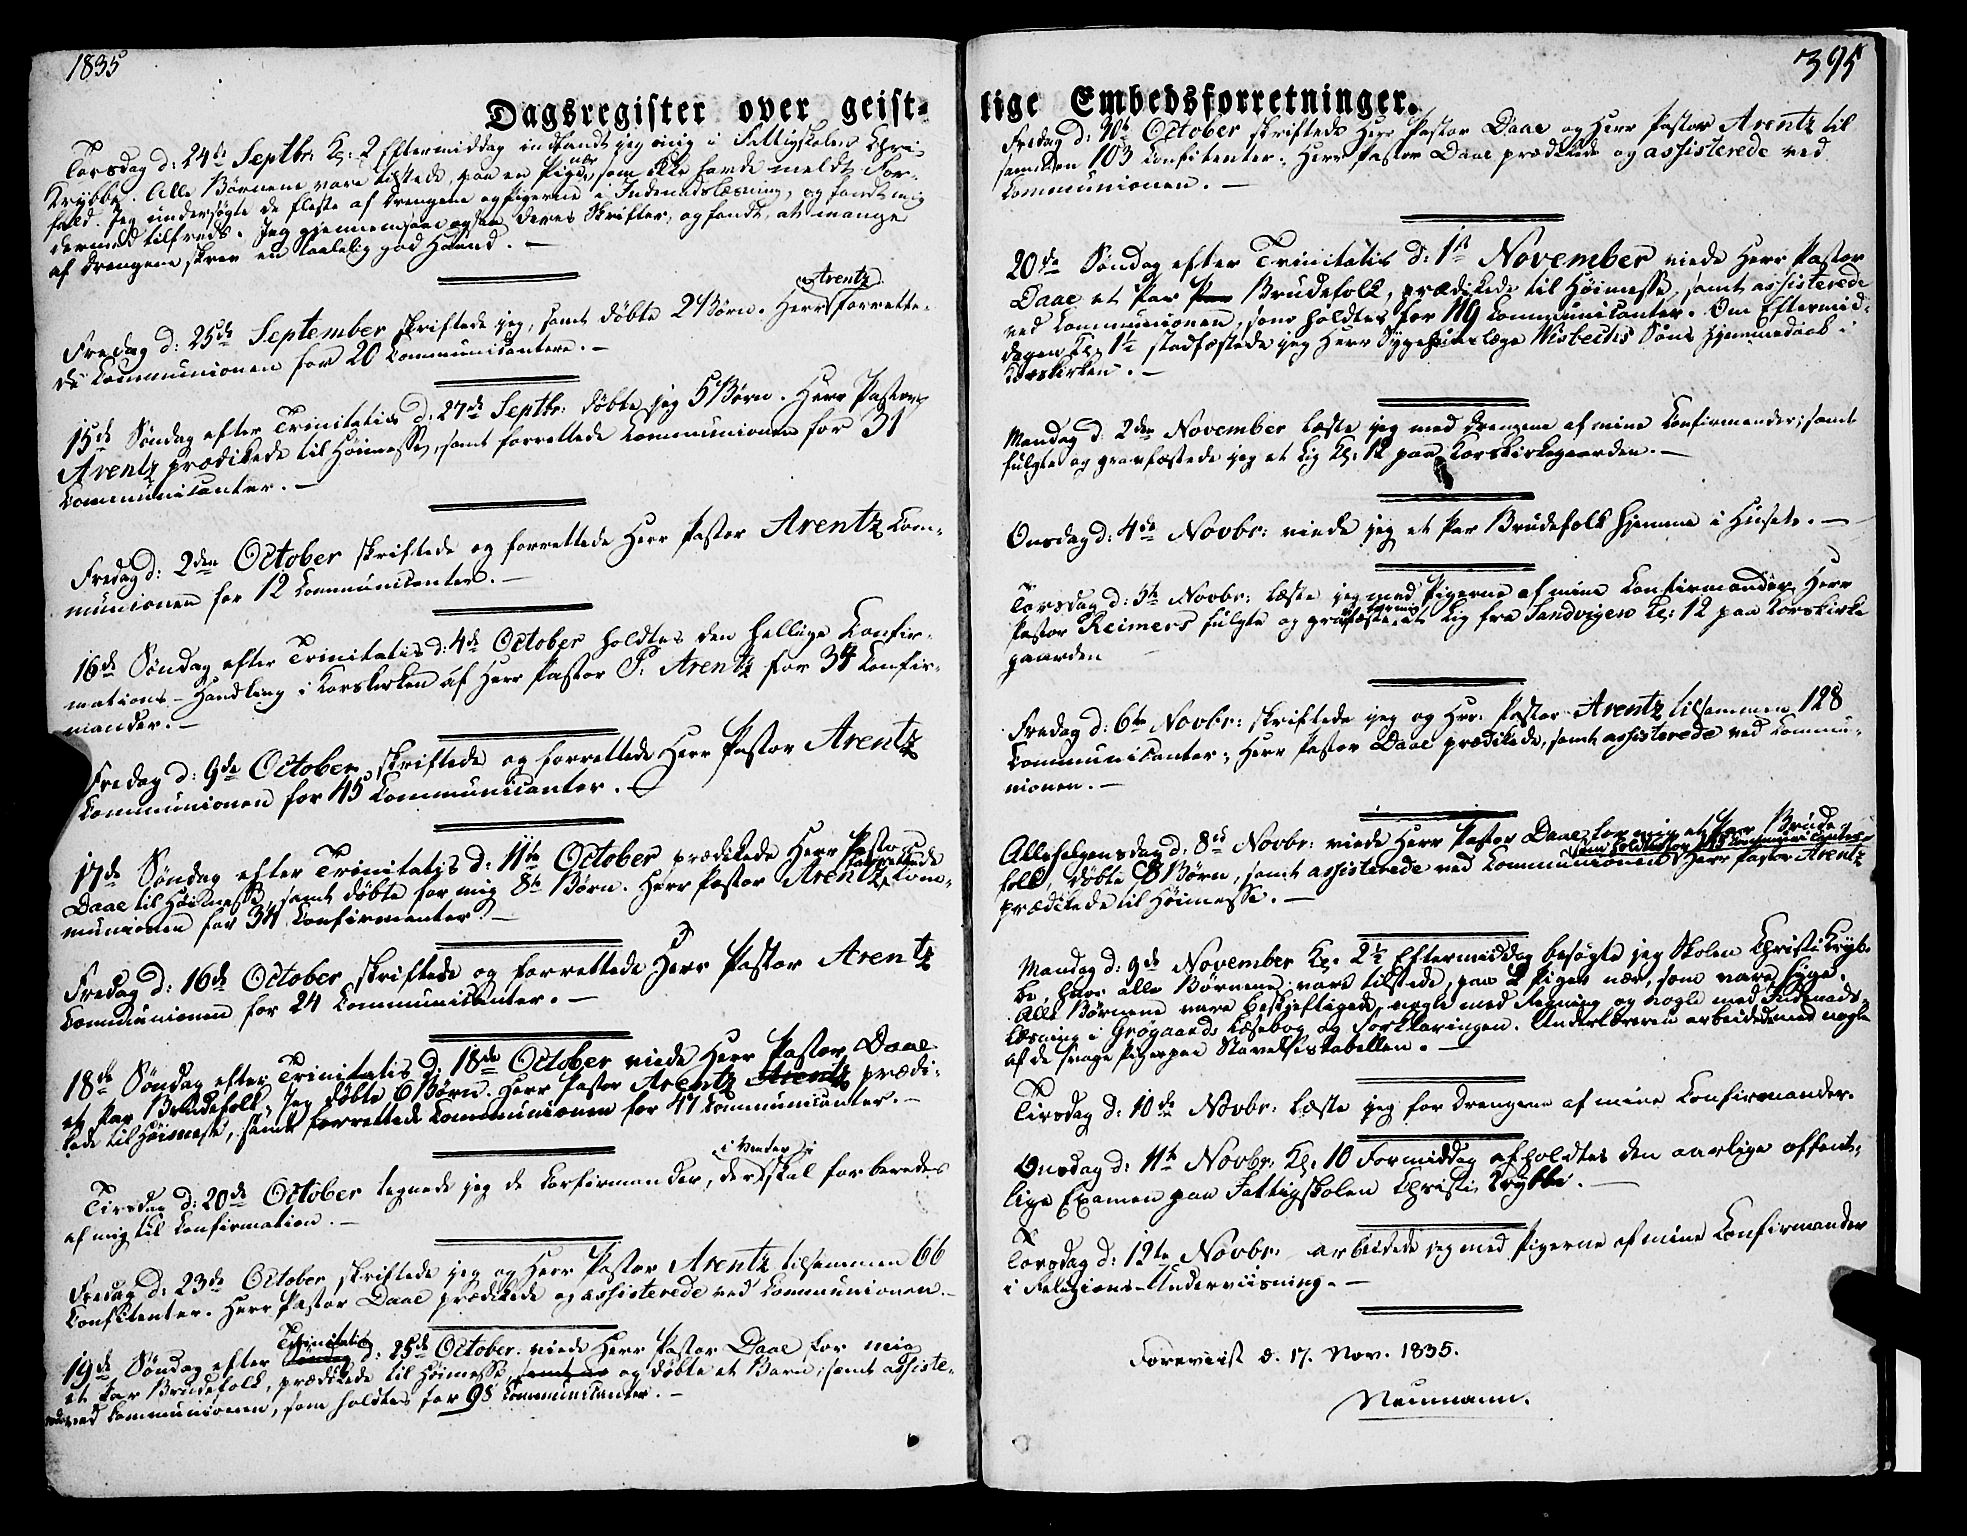 1835
Dagsregister over geist-
Torsdag d: 24de Septbr: Kl: 2 Eftermiddag indfandt jeg mig i Fattigskolen Christi
Krybbe. Alle Børnene vare tilstede, paa en Pige nær, som ikke havde meldt For-
fald. Jeg undersøgte de fleste af Drengene og Pigerne i Indenadslæsning, og fandt mig
dermed tilfreds. Jeg gjennemsaae ogsaa deres Skrifter, og fandt, at mange
af Drengene skrev en taalelig god Haand. –
Fredag d: 25de September skriftede jeg, samt døbte 2 Børn. Herr Arentz forrette-
de Communionen for 20 Communicantere. –
15de Søndag efter Trinitatis d: 27de Septbr: døbte jeg 5 Børn. Herr Pastor
Arentz prædikede til Høimesse, samt forrettede Communionen for 31
Communicanter. –
Fredag d: 2den October skriftede og forrettede Herr Pastor Arentz Com-
munionen for 12 Communicanter. –
16de Søndag efter Trinitatis d: 4de October holdtes den hellige Confir-
mations-Handling i Korskirken af Herr Pastor P. Arentz for 34 Confir-
mander. –
Fredag d: 9de October skriftede og forrettede Herr Pastor Arentz
Communionen for 45 Communicanter. –
17de Søndag efter Trinitatis d: 11te October prædikede Herr Pastor
Daae til Høimesse, samt døbte for mig 8te Børn. Herr Pastor Arentz forrettede Com-
munionen for 34 Confirmanter. –
Fredag d: 16de October skriftede og forrettede Herr Pastor Arentz
Communionen for 24 Communicanter. –
18de Søndag efter Trinitatis d: 18de October viede Herr Pastor Daae
et Par Brudefolk, Jeg døbte 6 Børn. Herr Pastor Arentz Arentz prædi-
kede til Høimesse, samt forrettede Communionen for 47 Communicanter. –
Tirsdag d: 20de October tegnede jeg de Confirmander, der i Vinter skal forberedes
af mig til Confirmation. –
Fredag d: 23de October skriftede jeg og Herr Pastor Arentz tilsammen 66
Confitenter. Herr Pastor Daae prædikede og assisterede ved Communionen. –
19de Søndag efter Søndag Trinitatis d: 25de October viede Herr Pastor Daae for mig
et Par Brudefolk, prædikede til Høimesse, samt og døbte et Barn, samt assiste-
rede ved Communionen, som holdtes for 98 Communicanter. –
395
lige Embedsforretninger.
Fredag d: 30te October skriftede Herr Pastor Daae og Herr Pastor Arentz til
sammen 103 Confitenter. Herr Pastor Daae prædikede og assisterede ved
Communionen. –
20de Søndag efter Trinitatis d: 1ste November viede Herr Pastor
Daae et Par Par Brudefolk, prædikede til Høimesse, samt assisterede
ved Communionen, som holdtes for 119 Communicanter. Om Eftermid-
dagen Kl. 1½ stadfæstede jeg Herr Sygehuuslæge Wisbechs Søns Hjemmedaab i
Korskirken. –
Mandag d: 2den November læste jeg med Drengene af mine Confirmander; samt
fulgte og gravfæstede jeg et Lig Kl: 12 paa Korskirkegaarden. –
Onsdag d: 4de Novbr: viede jeg et Par Brudefolk hjemme i Huset. –
Torsdag d: 5te Novbr: læste jeg med Pigerne af mine Confirmander, Herr
Pastor Reimers fulgte og gravfæstede et Lig fra Sandvigen Kl: 12 paa Korskirke
gaarden
Fredag d: 6te Novbr: skriftede jeg og Hrr: Pastor Arentz tilsammen 128
Communicanter; Herr Pastor Daae prædikede, samt assisterede ved Commu-
nionen. –
Allehelgensdag d: 8de Novbr: viede Herr Pastor Daae for mig et Par Brude-
folk, døbte 8 Børn, samt assisterede ved Communionen som holdtes for Communicanter Herr Pastor Arentz
prædikede til Høimesse. –
Mandag d: 9de November Kl. 2½ Eftermiddag besøgte jeg Skolen Christi Kryb-
be, hvor alle Børnene vare tilstede, paa 2 Piger nær, som vare syge.
Alle Børnene vare beskjeftigede, nogle med Regning og nogle med Indenads-
læsning i Grøgaards Læsebog og Forklaringen. Underlæreren arbeidede med nogle
af de svage Piger paa Stavelsestabellen. –
Tirsdag d: 10de Novbr: læste jeg for Drengene af mine Confirmander.
Onsdag d: 11te Novbr: Kl: 10 Formiddag afholdtes den aarlige offent-
lige Examen paa Fattigskolen Christi Krybbe. –
Torsdag d: 12te Novbr: arbeidede jeg med Pigerne af mine Confirmander
i Religions-Underviisning. –
Foreviist d. 17. Nov. 1835.
Neumann.